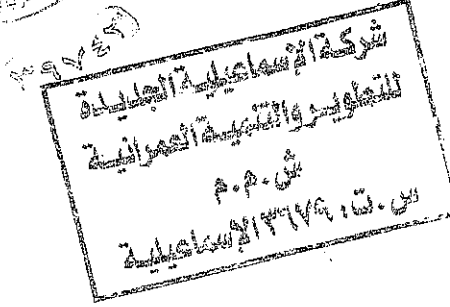 شركة الإسماعيلية الجديدة
للتطوير والتنمية العمرانية
ش.م.م
س.ت: ٣٦١٧٩ الإسماعيلية